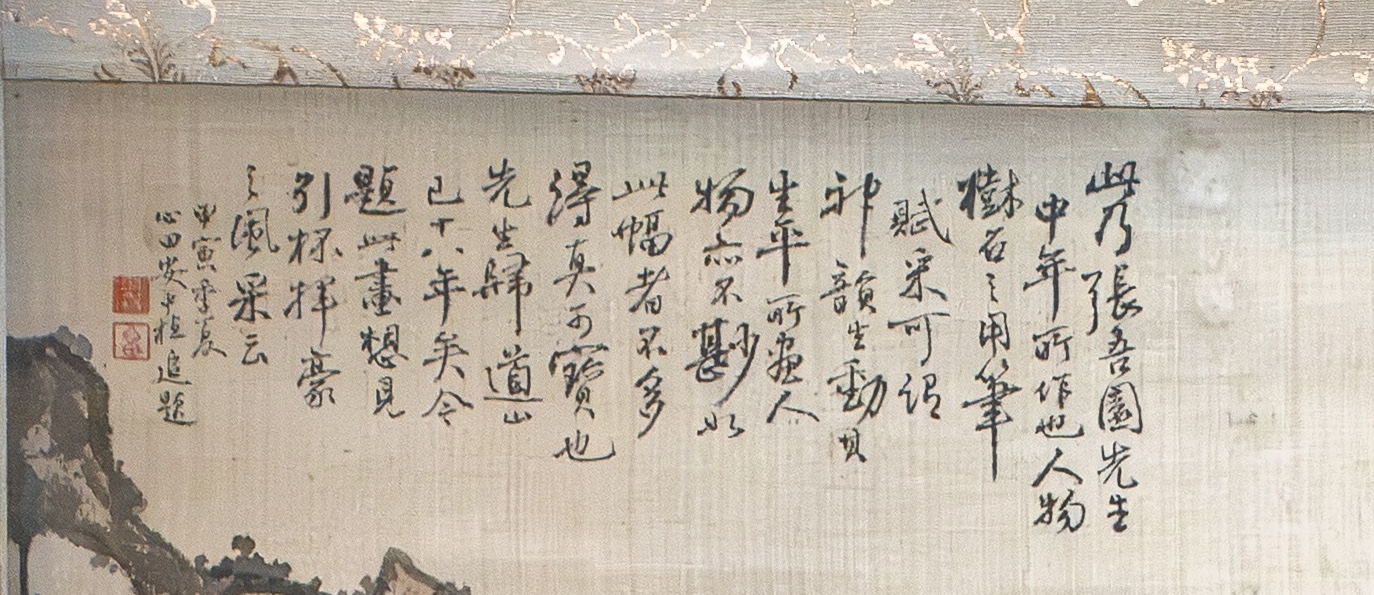 此乃張吾園先生
中年所作也人物
樹石之用筆
賦采可謂
神韻生動其
生平所畫人
物亦不甚妙如
此幅者不多
得真可寶也
先生歸道山
已十八年矣今
題此畫想見
引杯揮豪
之風采云
甲寅季夏
心田安中植追題